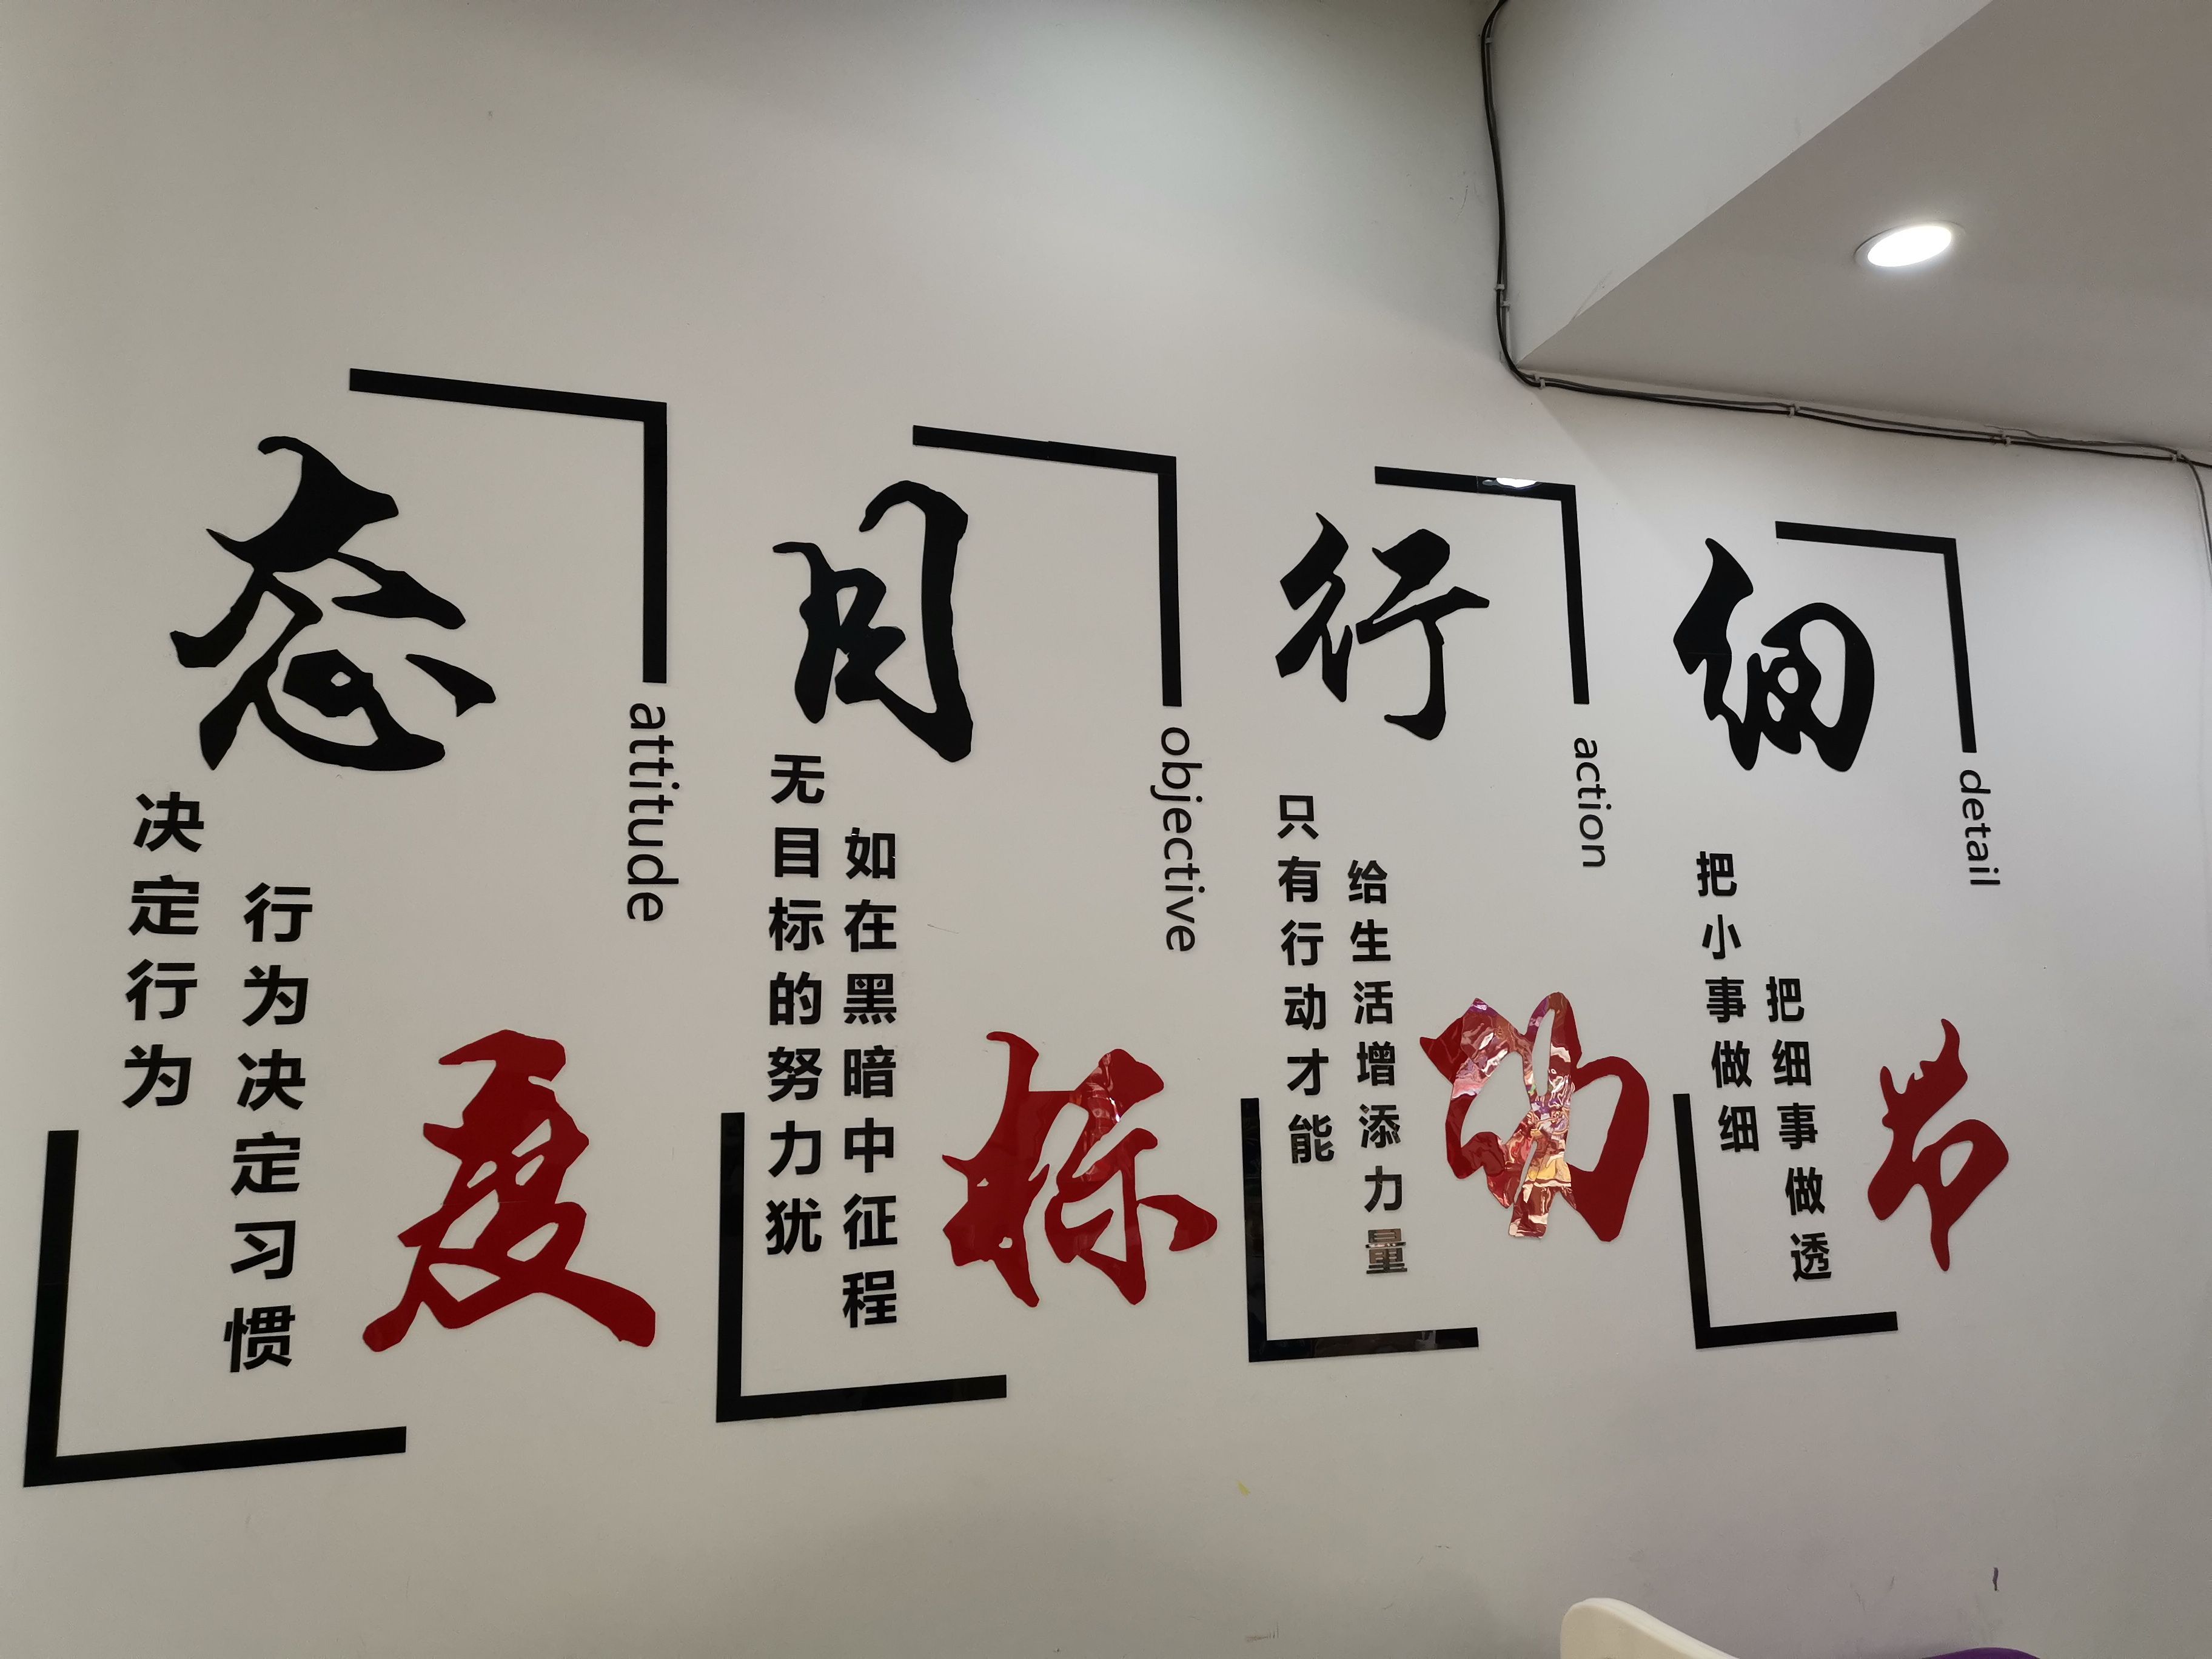 态度
attitude
决定行为
行为决定习惯
目标
objective
无目标的努力犹
如在黑暗中征程
行动
action
只有行动才能
给生活增添力量
细节
detail
把小事做细
把细事做透